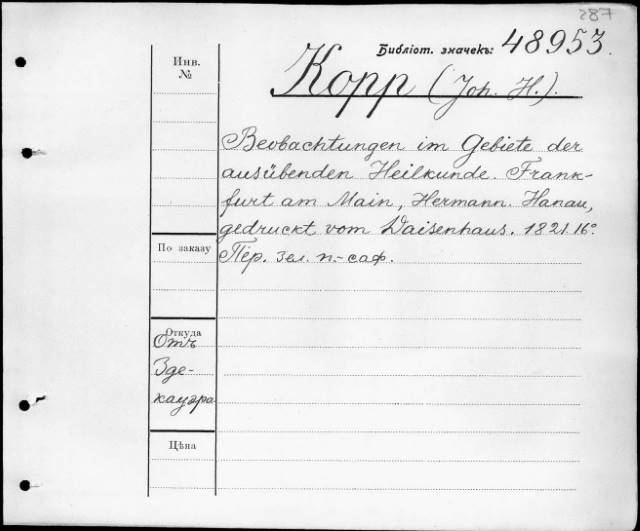 287
Библіот. значекъ: 48953.
Инв.
№
Kopp (Joh. H.).
Beobachtungen im Gebiete der
ausübenden Heilkunde. Frank-
furt am Main, Hermann. Hanau,
gedruckt vom Waisenhaus. 1821. 16°.
По заказу
Пер. зел. п.-саф.
Откуда
Отъ
Зде-
кауера
Цѣна